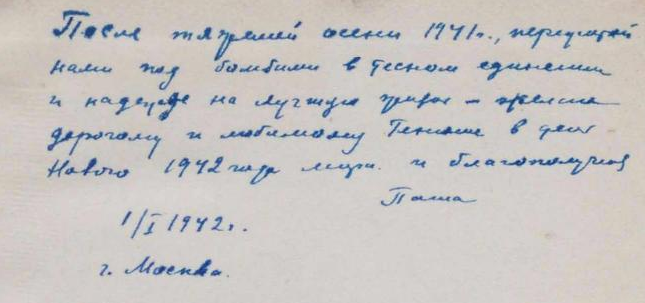 После тяжелой осени 1941г., пережитой
нами под бомбами в тесном единении
и надежде на лучшую
дорогому и любимому в день
Нового 1942 года мира и благополучия
Паша
1/I 1942г.
г. Москва.